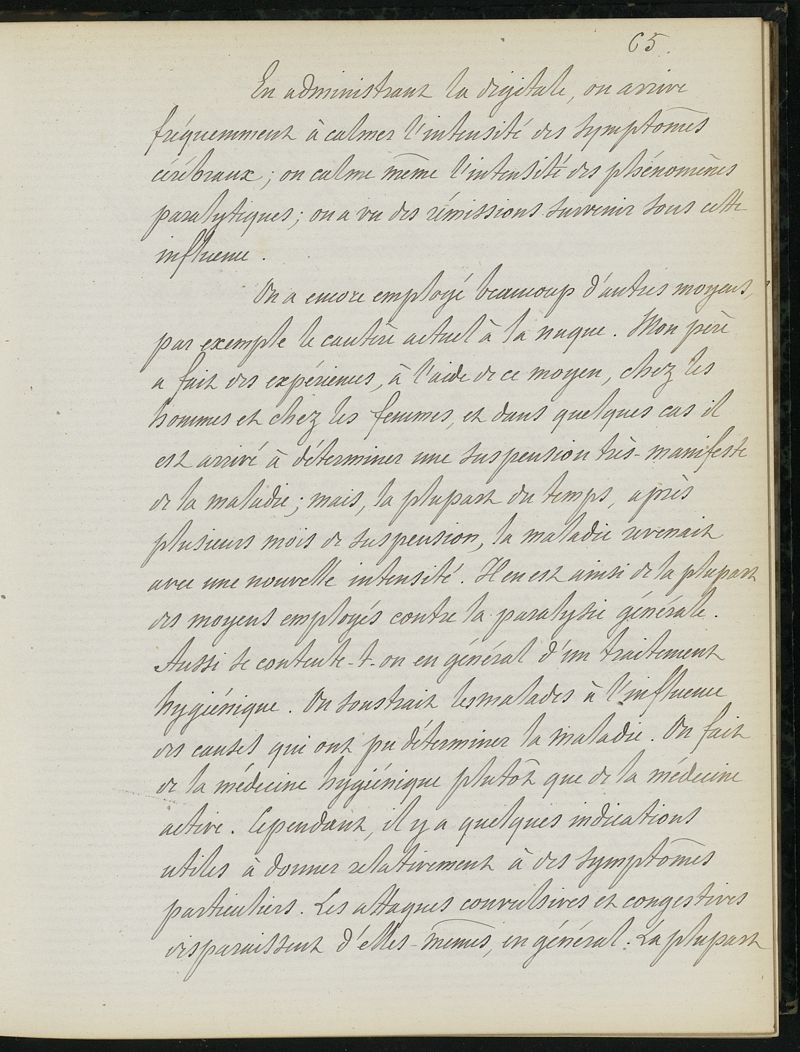 65.
En administrant la digitale, on arrive
fréquemment à calmer l'intensité des symptômes
cérébraux ; on calme même l'intensité des phénomènes
paralytiques ; on a vu des rémissions survenir sous cette
influence .
On a encore employé beaucoup d'autres moyens,
par exemple le cautère actuel à la nuque . Mon père
a fait des expériences, à l'aide de ce moyen, chez les
hommes et chez les femmes, et dans quelques cas il
est arrivé à déterminer une suspension très-manifeste
de la maladie ; mais, la plupart du temps, après
plusieurs mois de suspension, la maladie revenait
avec une nouvelle intensité . Il en est ainsi de la plupart
des moyens employés contre la paralysie générale .
Aussi se contente-t-on en général d'un traitement
hygiénique . On soustrait les malades à l'influence
des causes qui ont pu déterminer la maladie . On fait
de la médecine hygiénique plutôt que de la médecine
active . Cependant, il y a quelques indications
utiles à donner relativement à des symptômes
particuliers . Les attaques convulsives et congestives
disparaissent d'elles-mêmes, en général . La plupart